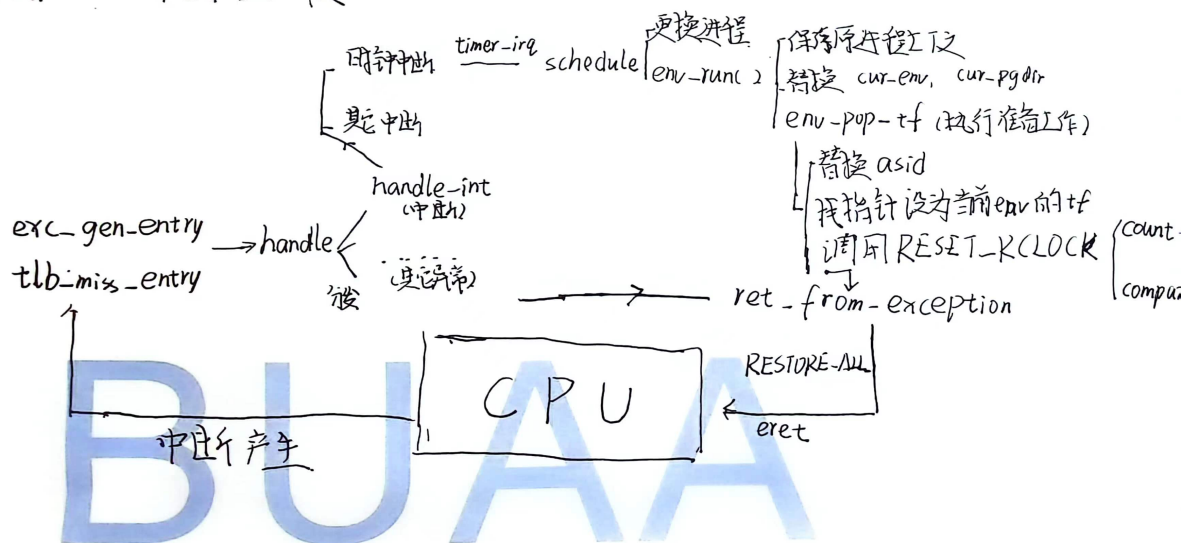 时钟中断 timer_irq schedule 更换进程
env_run()
保存原进程上下文
替换 cur_env, cur_pgdir
env_pop_tf (执行准备工作)
其它中断
替换 asid
栈指针设为当前env的tf
调用 RESET_KCLOCK
count
handle_int
(中断)
exc_gen_entry
tlb_miss_entry
handle
(其它异常)
ret_from_exception
RESTORE_ALL
CPU
eret
中断产生
BUAA